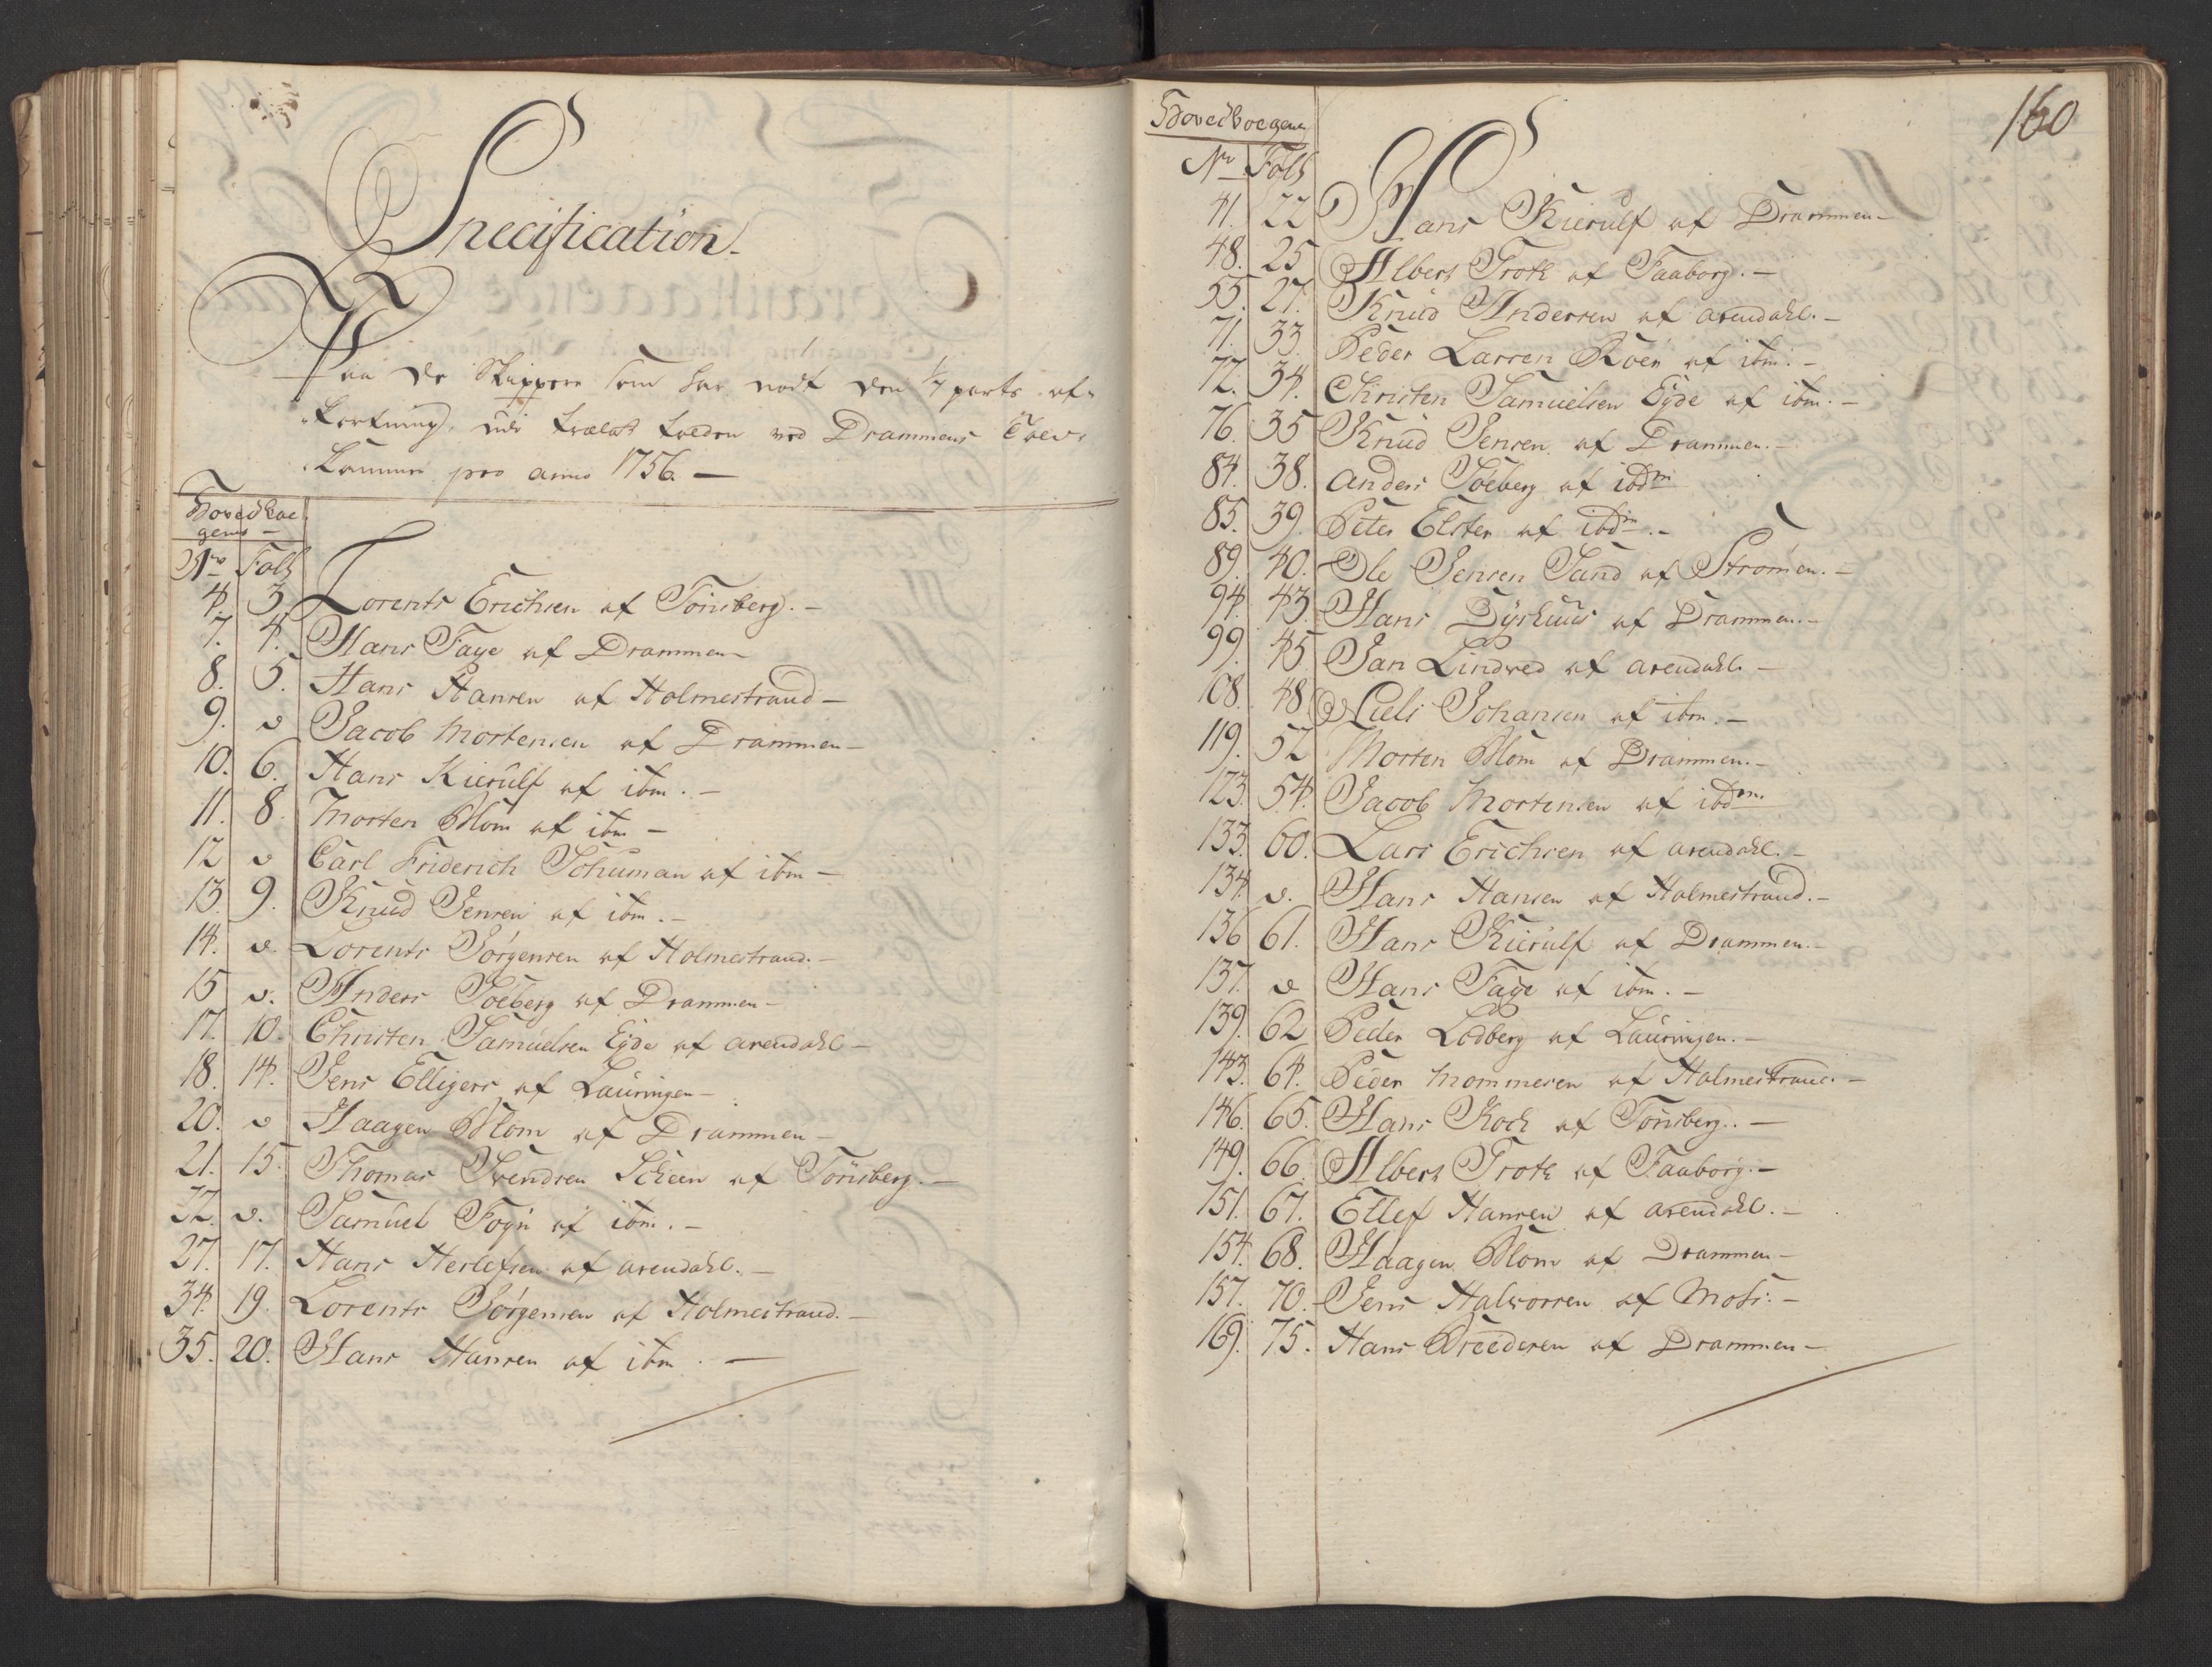 Specification.
Paa de Skippere som har nødt den 1/4 parts af-
kortning, udi Trælast tolden ved Drammens Told-
kammer pro anno 1756. —
Hovedboe
gens —
No Fols
4. 3. Lorents Erichsen af Tönsberg. —
7. 4. Hans Faye af Drammen —
8. 5. Hans Hansen af Holmestrand —
9. v Jacob Mortensen af Drammen —
10. 6. Hans Kierulf af ibm. —
11. 8. Morten Blom af ibm —
12 v Carl Friderich Schuman af ibm —
13. 9. Knud Jensen af ibm. —
14. v. Lorents Jørgensen af Holmestrand. —
15 v. Anders Toeberg af Drammen —
17. 10. Christen Samuelsen Eyde af arendahl —
18. 14. Jens Elligers af Lauringen —
20. v Haagen Blom af Drammen —
21. 15. Thomas Svendsen Scheen af Tönsberg. —
22. v. Samuel Foyn af ibm. —
27. 17. Hans Herlefsen af arendahl. —
34. 19. Lorents Jørgensen af Holmestrand. —
35. 20. Hans Hansen af ibm. —
160
Hovedboegens
No Fols
41. 22 Hans Kierulf af Drammen —
48. 25 Albert Troth af Faaborg. —
55. 27. Knud Andersen af arendahl. —
71. 33. Peder Larsen Roer af ibm. —
72. 34. Christen Samuelsen Eyde af ibm. —
76. 35 Knud Jensen af Drammen. —
84. 38. Anders Toeberg af ibdm
85. 39. Peter Elster af ibdm. —
89. 40. Ole Jensen Sand af Strømen. —
94. 43. Hans Dyrhuus af Drammen. —
99. 45. Jan Lindved af arendahl. —
108. 48. Niels Johansen af ibm. —
119. 52 Morten Blom af Drammen. —
123. 54. Jacob Mortensen af ibdm.
133. 60. Lars Erichsen af arendahl. —
134. v. Hans Hansen af Holmestrand. —
136 61. Hans Kierulf af Drammen. —
137. v Hans Faye af ibm. —
139. 62 Peder Lodberg af Lauringen. —
143. 64. Peder Mommesen af Holmestrand. —
146. 65. Hans Koch af Tönsberg. —
149. 66. Albert Troth af Faaborg. —
151. 67. Ellef Hansen af arendahl. —
154. 68. Haagen Blom af Drammen —
157. 70. Jens Halvorsen af Moss. —
169. 75. Hans Breedesen af Drammen —